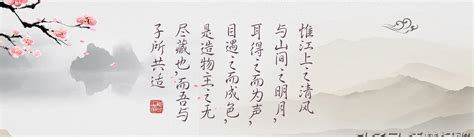 惟江上之清风
与山间之明月，
耳得之而为声
目遇之而成色，
是造物主之无
尽藏也，而吾与
子所共适